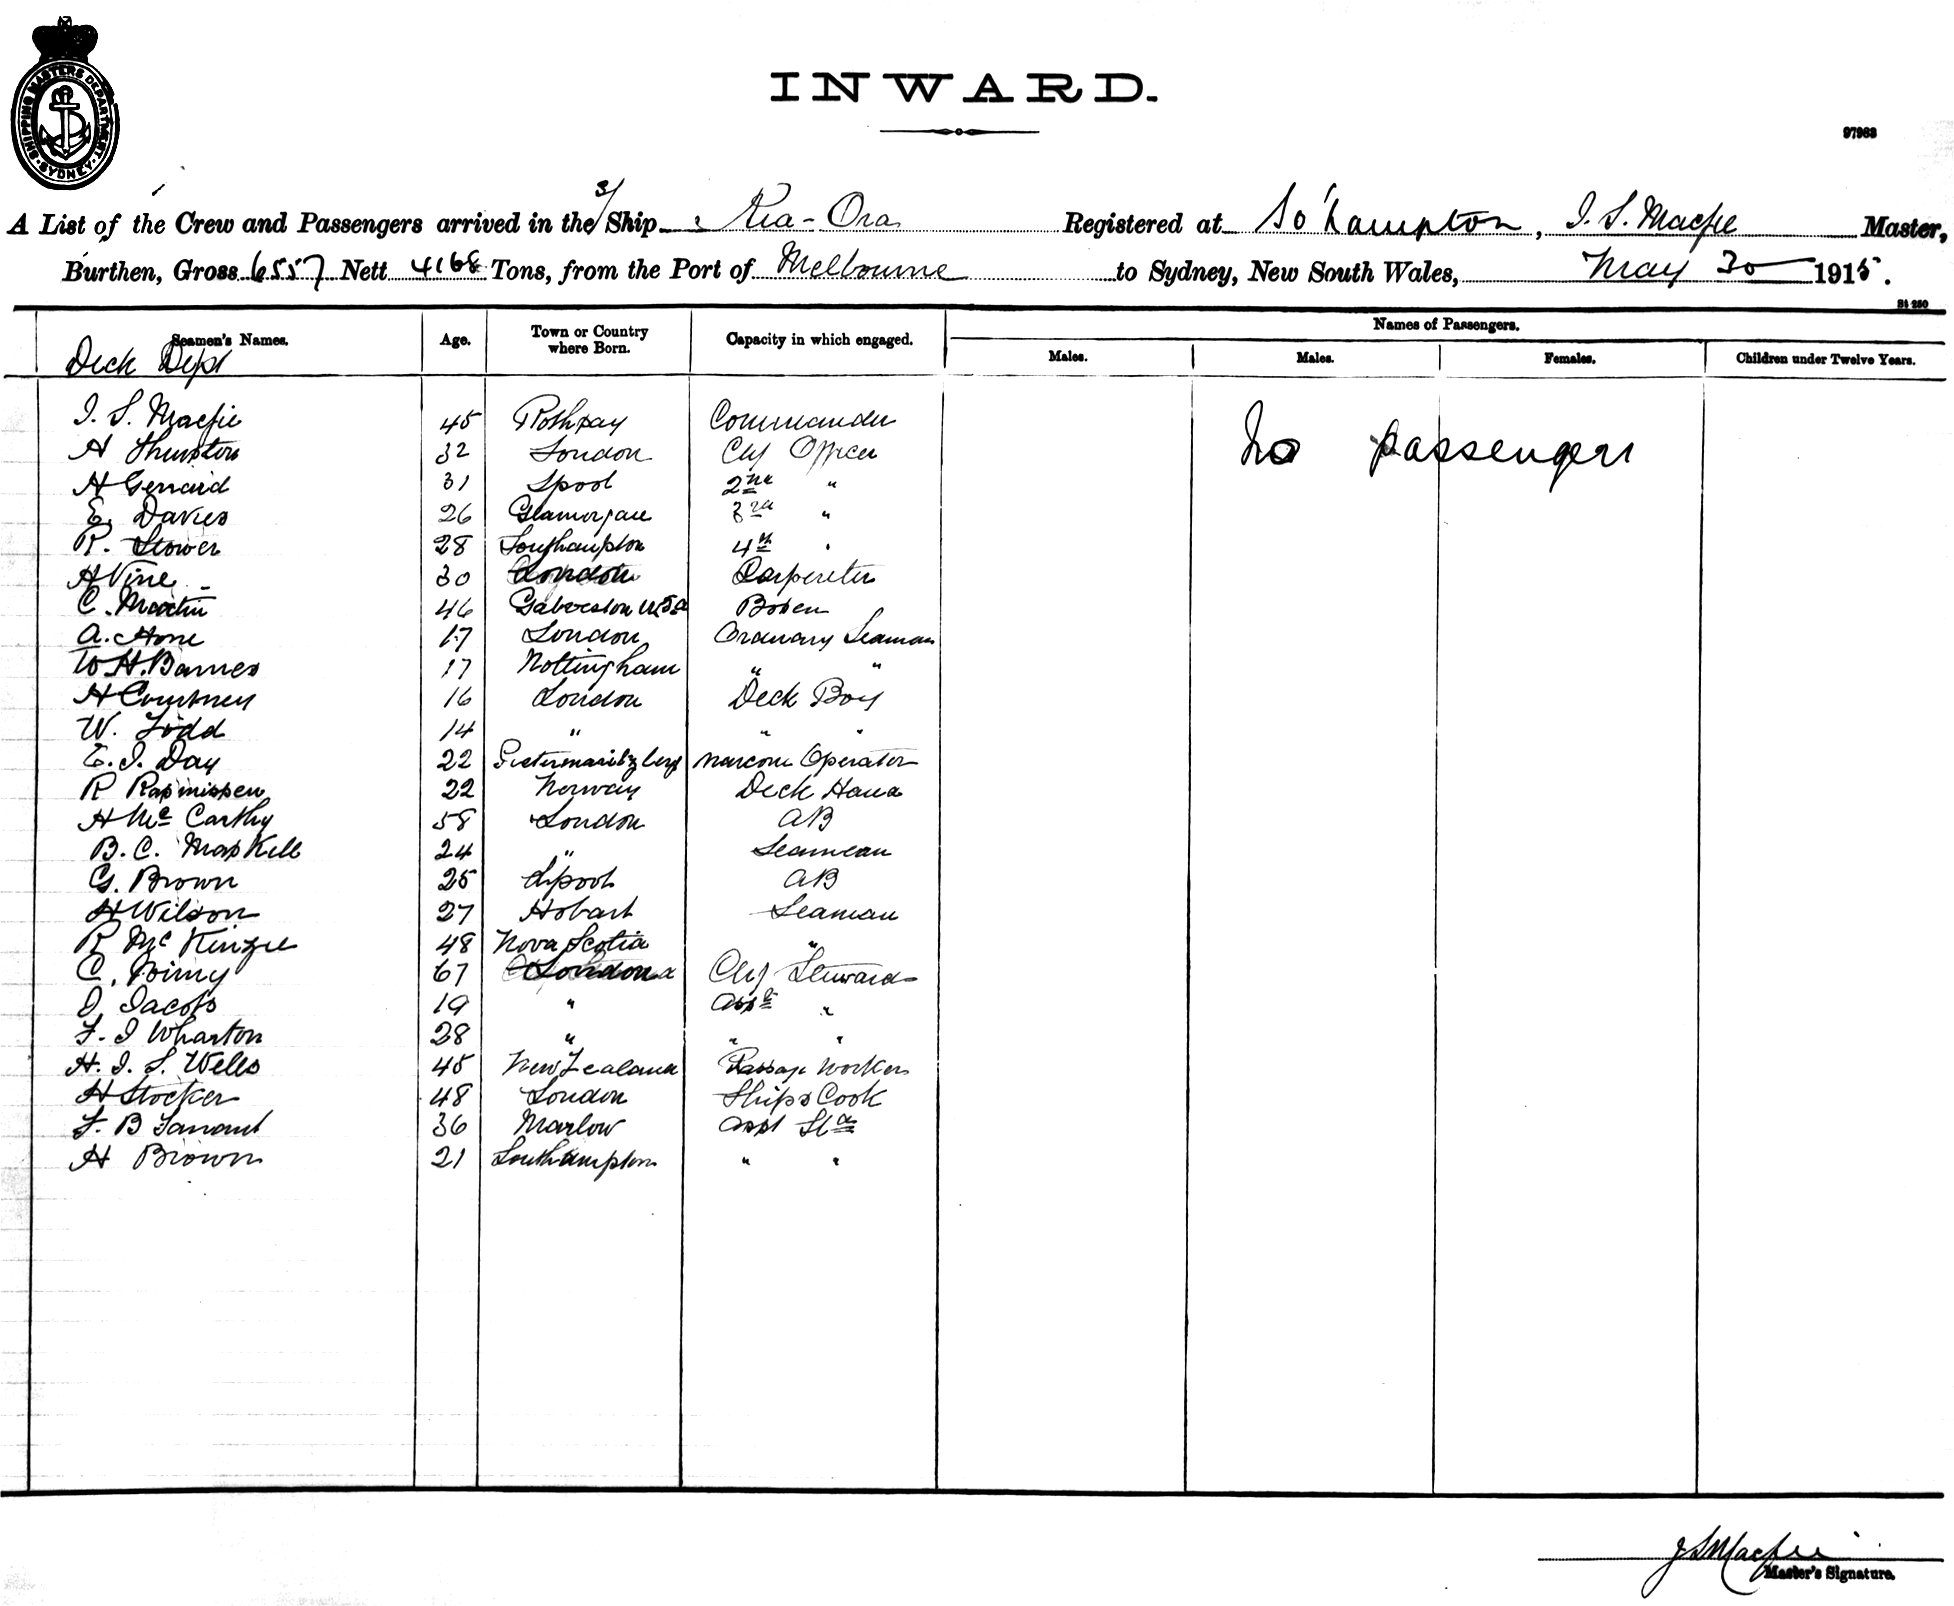 SHIPPING MASTERS DEPARTMENT. SYDNEY
INWARD.
97963
A List of the Crew and Passengers arrived in the S/ Ship Kia-Ora Registered at So'hampton, J. S. Macfie Master,
Burthen, Gross 6557 Nett 4168 Tons, from the Port of Melbourne to Sydney, New South Wales, May 30 1915.
St 250
Seamen's Names. Age. Town or Country where Born. Capacity in which engaged. Names of Passengers.
Males. Males. Females. Children under Twelve Years.
Deck Dept
J. S. Macfie 45 Rothsay Commander
No passengers
A Thurston 32 London Chf Officer
H Gerrard 31 Lpool 2nd "
E. Davies 26 Glamorgan 3rd "
R. Stower 28 Southampton 4th "
A Vine 30 London Carpenter
C. Martin 46 Galveston USA Bosen
A. Hone 17 London Ordinary Seaman
W H. Barnes 17 Nottingham " "
H Courtney 16 London Deck Boy
W. Todd 14 " " "
E. J. Day 22 Pietermaritzberg Marconi Operator
R Rasmissen 22 Norway Deck Hand
H McCarthy 58 London AB
B. C. Maskell 24 " Seaman
G. Brown 25 Lpool AB
H Wilson 27 Hobart Seaman
R McKinzie 48 Nova Scotia "
C. 67 London Chf Steward
J. Jacobs 19 " Asst "
F. J Wharton 28 " " "
H. J. S. Wells 45 New Zealand Passage Worker
H Stocker 48 London Ships Cook
F. B Tarrant 36 Marlow Asst Std
H Brown 21 Southampton " "
J S Macfie
Master's Signature.